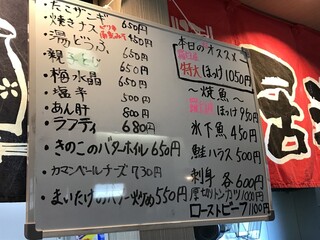 ・たこザンギ 650円
・焼きナス 450円
・湯どうふ 450円
・親 650円
・梅水晶 650円
・塩辛 500円
・あん肝 800円
・ラフティ 680円
・きのこのバターホイル 650円
・カマンベールチーズ 730円
・まいたけのバター炒め 550円
本日のオススメ
特大 ほっけ 1050円
〜焼魚〜
ほっけ 950円
氷下魚 450円
鮭ハラス 500円
刺身 各600円
厚切トンカツ 1000円
ローストビーフ 1100円